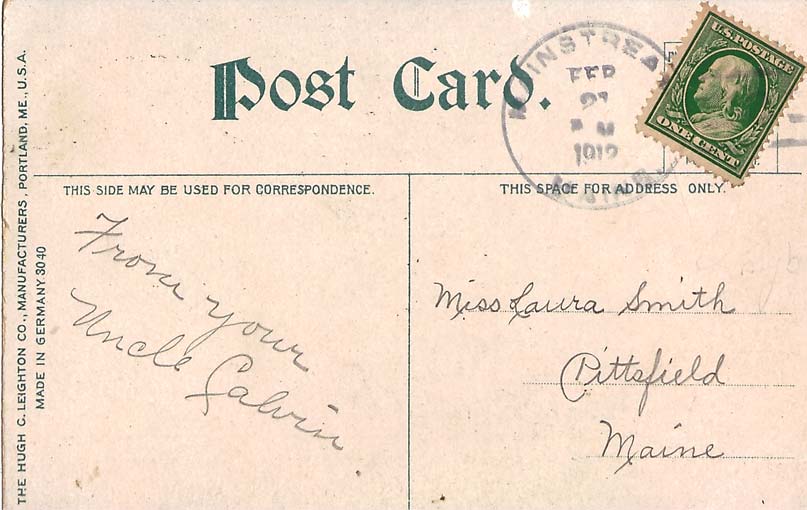 Post Card.
MAINSTREAM
FEB
1912
MAINE
U.S. POSTAGE
ONE CENT
THIS SIDE MAY BE USED FOR CORRESPONDENCE.
THIS SPACE FOR ADDRESS ONLY.
From your
Uncle Calvin
Miss Laura Smith
Pittsfield
Maine
THE HUGH C. LEIGHTON CO., MANUFACTURERS, PORTLAND, ME., U.S.A.
MADE IN GERMANY 3040